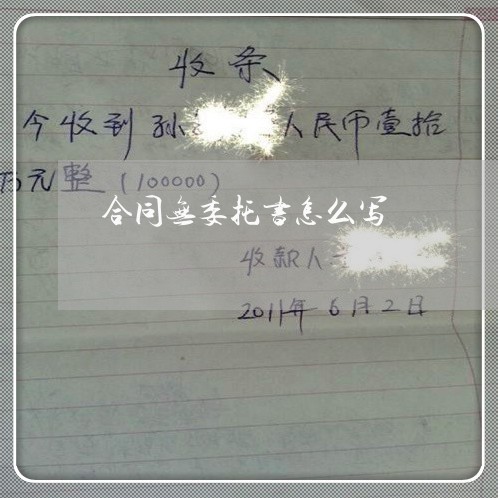 收条
今收到孙 人民币壹拾
万元整(100000)
合同无委托书怎么写
收款人
2011年6月2日